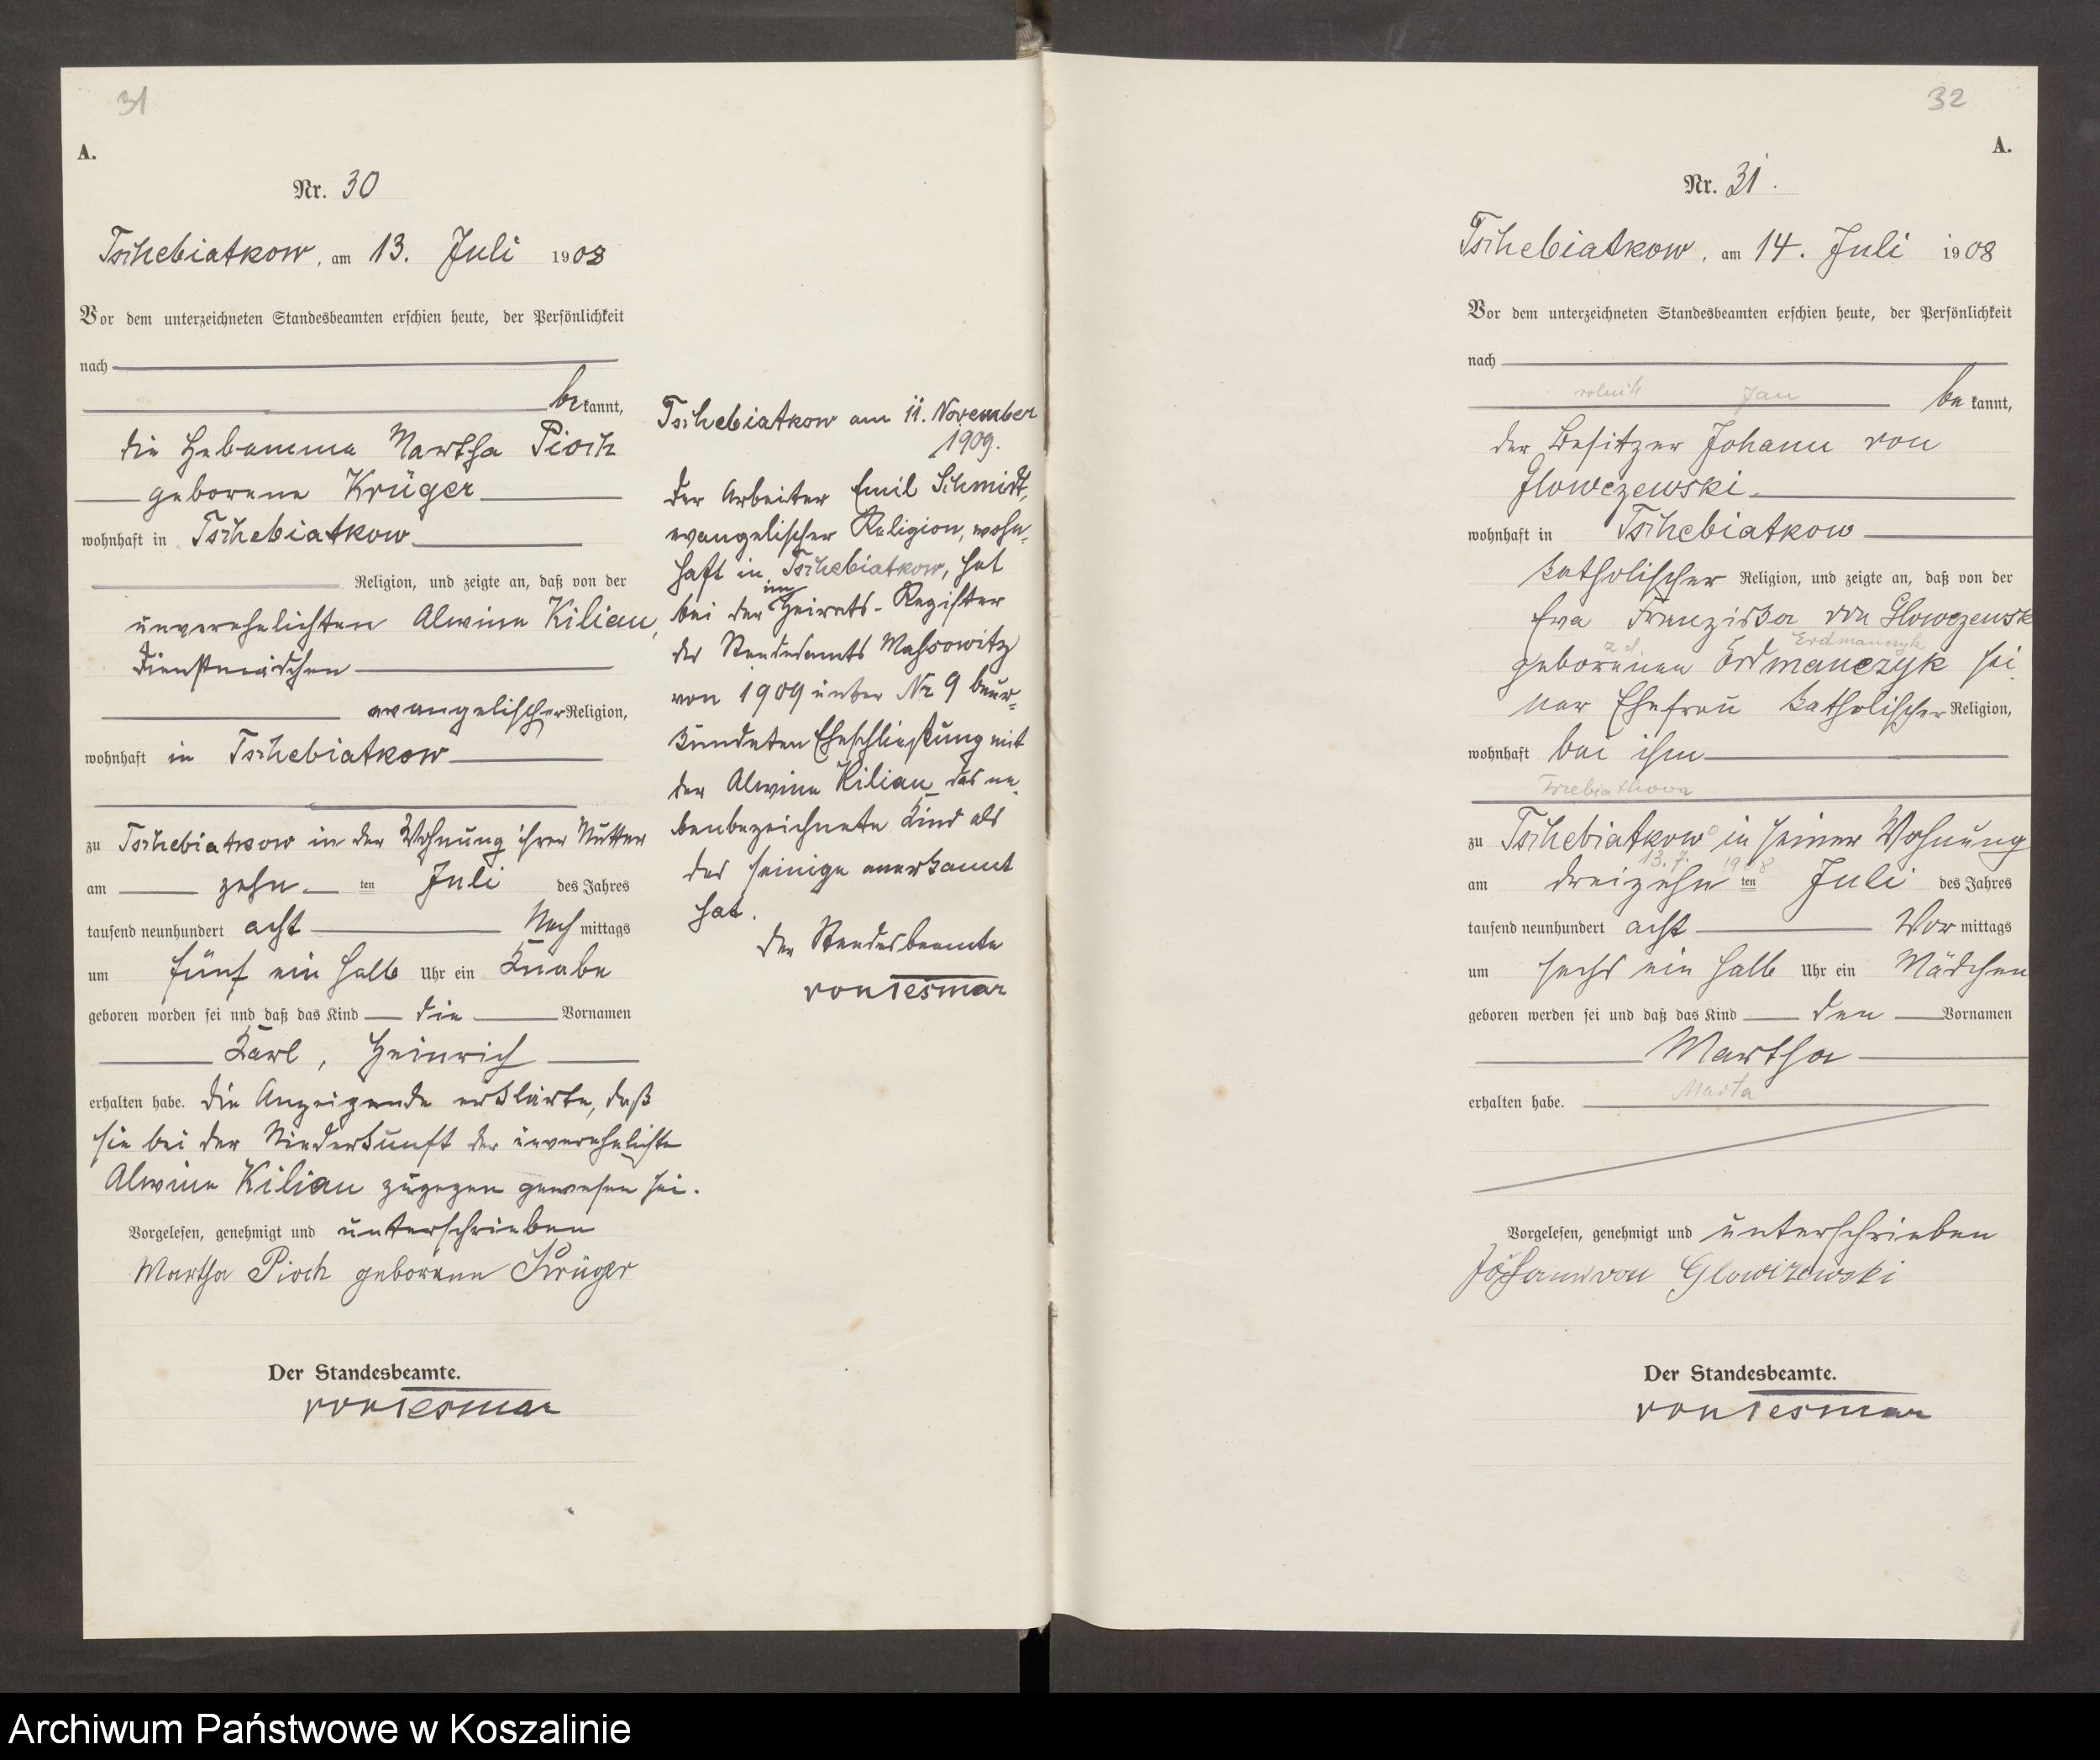 31
A.
Nr. 30
Tschebiatkow, am 13. Juli 1908
Vor dem unterzeichneten Standesbeamten erschien heute, der Persönlichkeit
nach
bekannt,
die Hebamme Martha Pioch
geborene Krüger
wohnhaft in Tschebiatkow
Religion, und zeigte an, daß von der
unverehelichten Alwine Kilian,
Dienstmädchen
evangelischer Religion,
wohnhaft in Tschebiatkow
zu Tschebiatkow in der Wohnung ihrer Mutter
am zehn ten Juli des Jahres
tausend neunhundert acht Nachmittags
um fünf ein halb Uhr ein Knabe
geboren worden sei und daß das Kind die Vornamen
Karl, Heinrich
erhalten habe. Die Anzeigende erklärte, daß
sie bei der Niederkunft der unverehelichte
Alwine Kilian zugegen gewesen sei.
Vorgelesen, genehmigt und unterschrieben
Martha Pioch geborene Krüger
Der Standesbeamte.
von Tesmar
Tschebiatkow am 11. November
1909.
Der Arbeiter Emil Schmidt,
evangelischer Religion, wohn-
haft in Tschebiatkow, hat
bei der im Heirats-Register
des Standesamts Massowitz
von 1909 unter Nr 9 beur-
kundeten Eheschließung mit
der Alwine Kilian das ne-
benbezeichnete Kind als
das seinige anerkannt
hat.
Der Standesbeamte
von Tesmar
32
A.
Nr. 31.
Tschebiatkow, am 14. Juli 1908
Vor dem unterzeichneten Standesbeamten erschien heute, der Persönlichkeit
nach
rolnik Jan
bekannt,
der Besitzer Johann von
Glowczewski
wohnhaft in Tschebiatkow
katholischer Religion, und zeigte an, daß von der
Eva Franziska von Glowczewsk
z d. Erdmanczyk
geborenen Erdmanczyk sei-
ner Ehefrau katholischer Religion,
wohnhaft bei ihm
Trzebiatkowa
zu Tschebiatkow in seiner Wohnung
13. 7. 1908
am dreizehn ten Juli des Jahres
tausend neunhundert acht Vormittags
um sechs ein halb Uhr ein Mädchen
geboren worden sei und daß das Kind den Vornamen
Martha
Marta
erhalten habe.
Vorgelesen, genehmigt und unterschrieben
Johann von Glowczewski
Der Standesbeamte.
von Tesmar
Archiwum Państwowe w Koszalinie